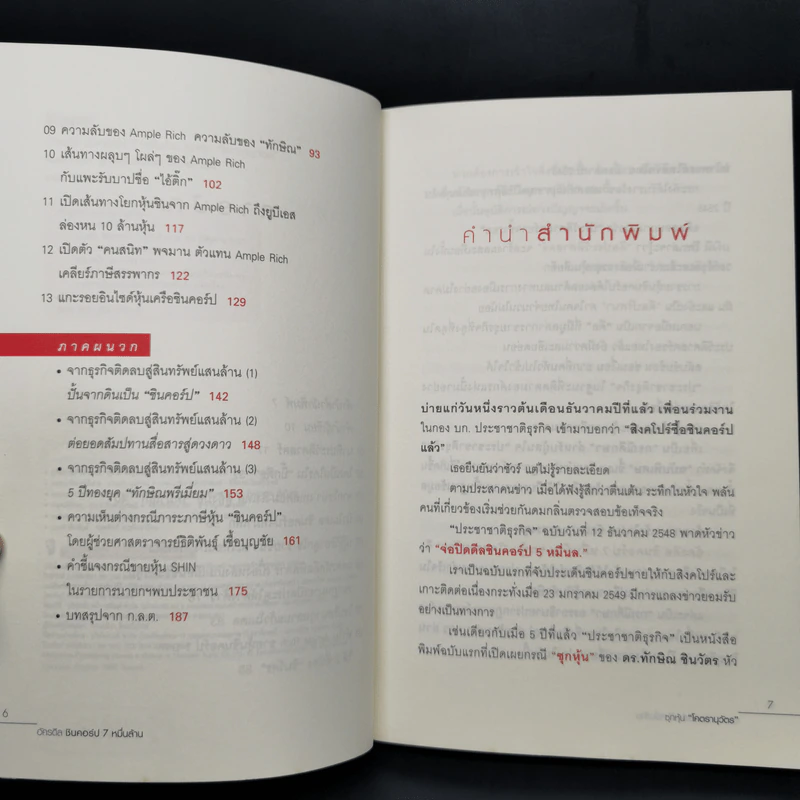 09 ความลับของ Ample Rich ความลับของ "ทักษิณ" 93
10 เส้นทางผลุบๆ โผล่ๆ ของ Ample Rich
กับแพะรับบาปชื่อ "ไอ้ติ๊ก" 102
11 เปิดเส้นทางโยกหุ้นชินจาก Ample Rich ถึงยูบีเอส
ล่องหน 10 ล้านหุ้น 117
12 เปิดตัว "คนสนิท" พจมาน ตัวแทน Ample Rich
เคลียร์ภาษีสรรพากร 122
13 แกะรอยอินไซด์หุ้นเครือชินคอร์ป 129
ภาคผนวก
• จากธุรกิจติดลบสู่สินทรัพย์แสนล้าน (1)
ปั้นจากดินเป็น "ชินคอร์ป" 142
• จากธุรกิจติดลบสู่สินทรัพย์แสนล้าน (2)
ต่อยอดสัมปทานสื่อสารสู่ดวงดาว 148
• จากธุรกิจติดลบสู่สินทรัพย์แสนล้าน (3)
5 ปีทองยุค "ทักษิณพรีเมี่ยม" 153
• ความเห็นต่างกรณีภาระภาษีหุ้น "ชินคอร์ป"
โดยผู้ช่วยศาสตราจารย์ธิติพันธุ์ เชื้อบุญชัย 161
• คำชี้แจงกรณีขายหุ้น SHIN
ในรายการนายกฯพบประชาชน 175
• บทสรุปจาก ก.ล.ต. 187
6
อัครดีล ชินคอร์ป 7 หมื่นล้าน
คำนำสำนักพิมพ์
บ่ายแก่วันหนึ่งราวต้นเดือนธันวาคมปีที่แล้ว เพื่อนร่วมงาน
ในกอง บก. ประชาชาติธุรกิจ เข้ามาบอกว่า "สิงคโปร์ซื้อชินคอร์ป
แล้ว"
เธอยืนยันว่าชัวร์ แต่ไม่รู้รายละเอียด
ตามประสาคนข่าว เมื่อได้ฟังรู้สึกว่าตื่นเต้น ระทึกในหัวใจ พลัน
คนที่เกี่ยวข้องเริ่มช่วยกันดมกลิ่นตรวจสอบข้อเท็จจริง
"ประชาชาติธุรกิจ" ฉบับวันที่ 12 ธันวาคม 2548 พาดหัวข่าว
ว่า "จ่อปิดดีลชินคอร์ป 5 หมื่นล."
เราเป็นฉบับแรกที่จับประเด็นชินคอร์ปขายให้กับสิงคโปร์และ
เกาะติดต่อเนื่องกระทั่งเมื่อ 23 มกราคม 2549 มีการแถลงข่าวยอมรับ
อย่างเป็นทางการ
เช่นเดียวกับเมื่อ 5 ปีที่แล้ว "ประชาชาติธุรกิจ" เป็นหนังสือ
พิมพ์ฉบับแรกที่เปิดเผยกรณี "ซุกหุ้น" ของ ดร.ทักษิณ ชินวัตร หัว
7
ซุกหุ้น "โคตรานุวัตร"